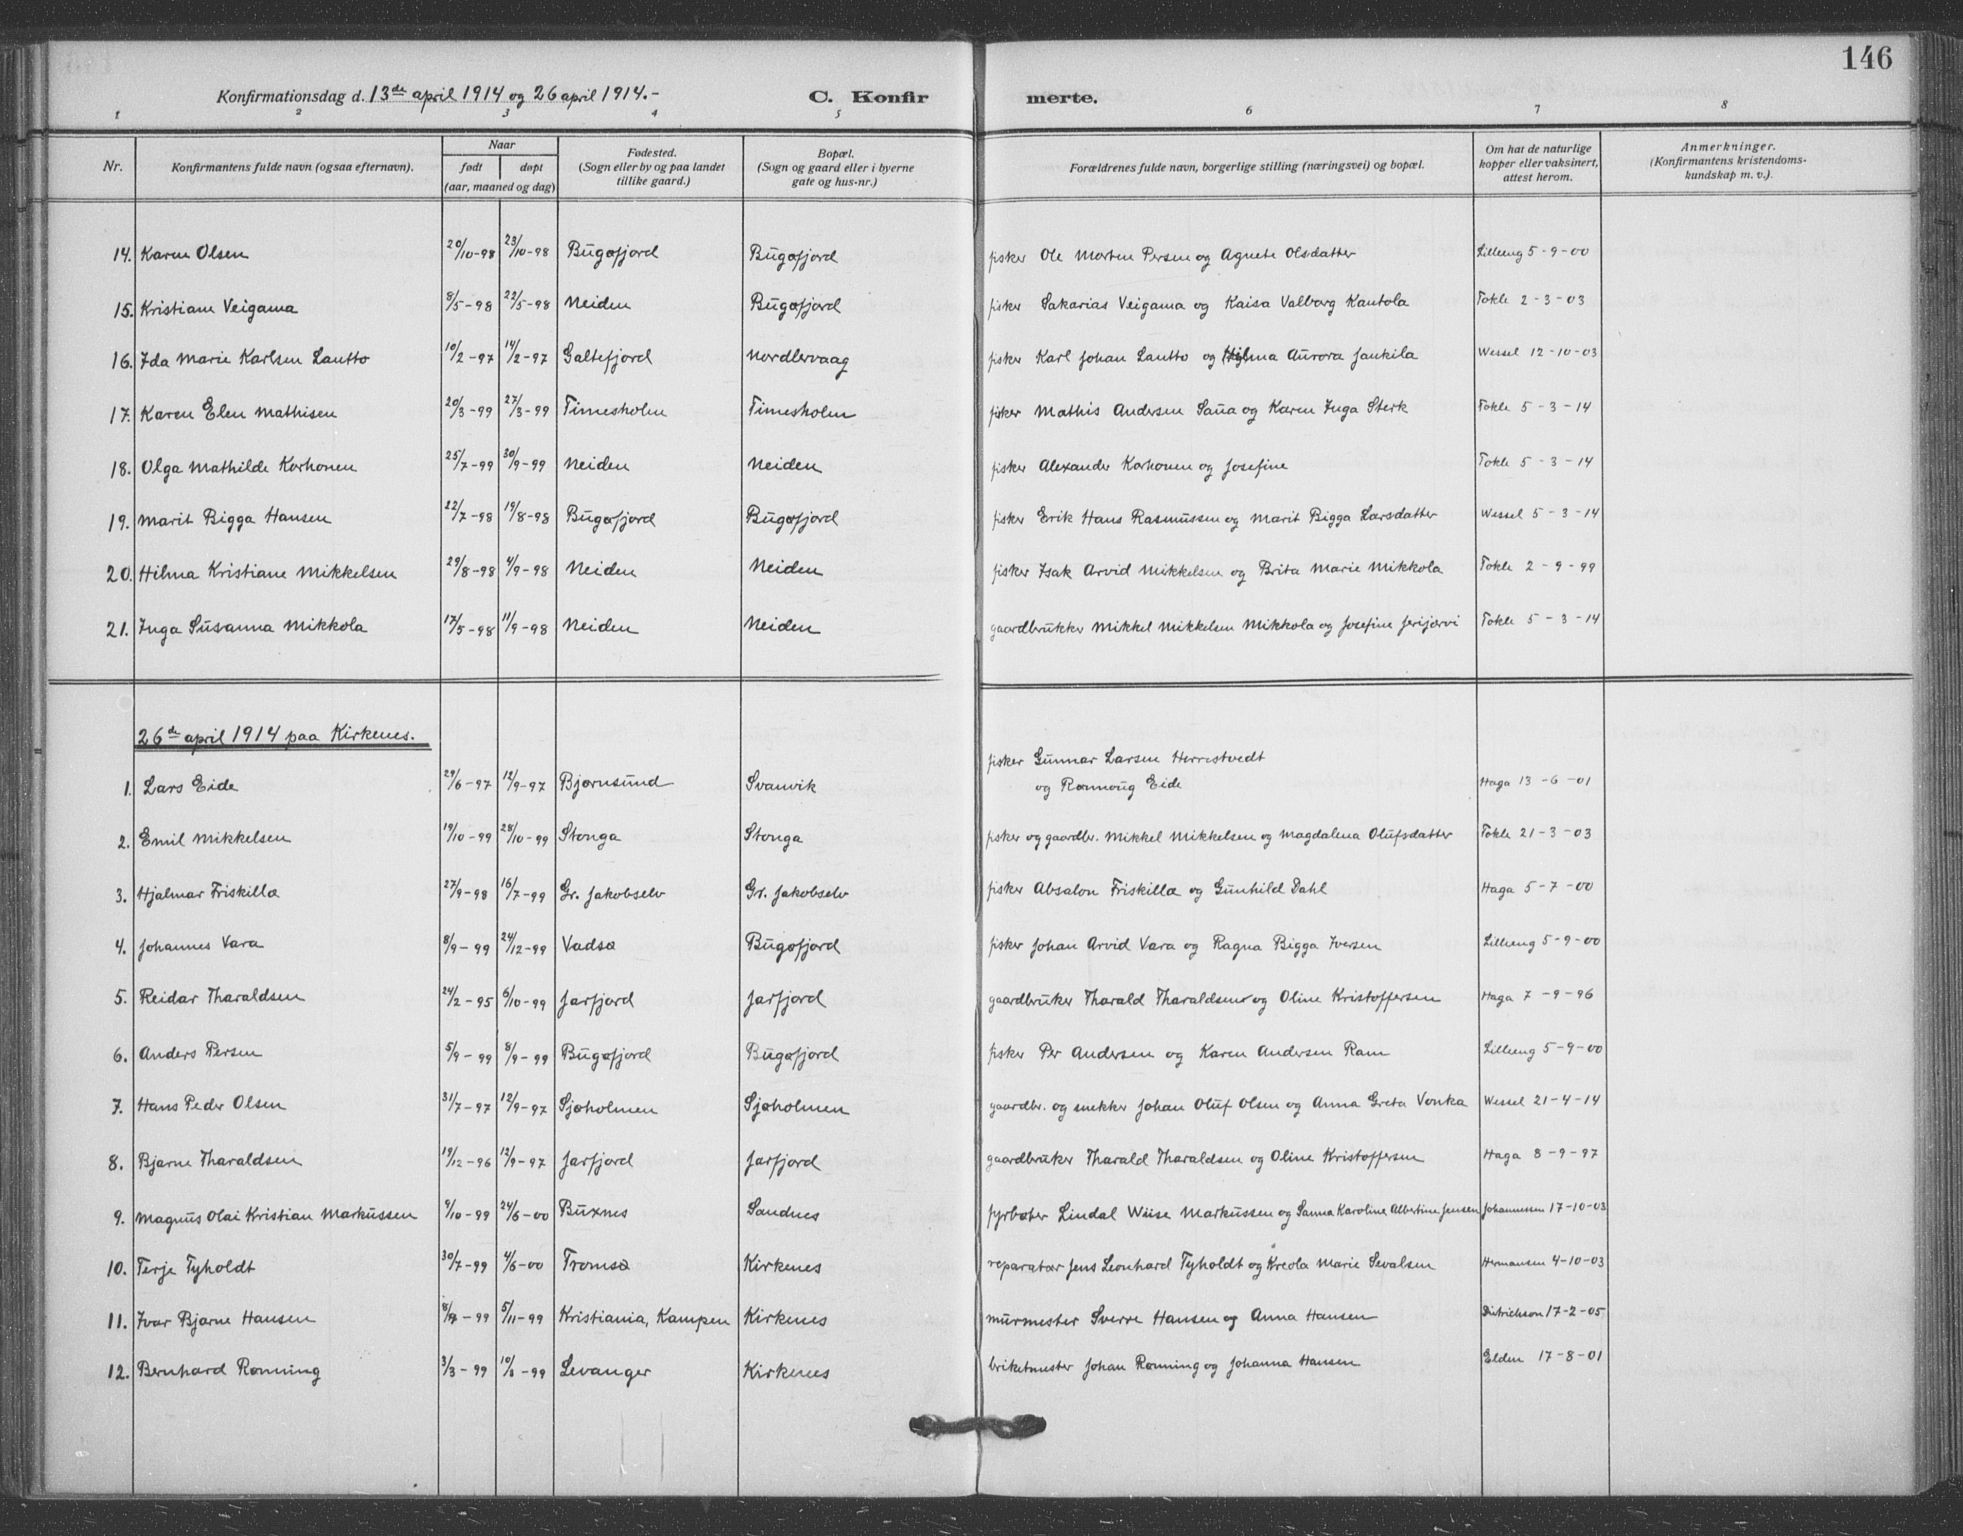 146
Konfirmationsdag d. 13de april 1914 og 26 april 1914.- C. Konfir merte.
1 2 3 4 5 6 7 8
Nr. Konfirmantens fulde navn (ogsaa efternavn). Naar født døpt (aar, maaned og dag) Fødested. (Sogn eller by og paa landet tillike gaard.) Bopæl. (Sogn og gaard eller i byerne gate og hus-nr.) Forældrenes fulde navn, borgerlige stilling (næringsvei) og bopæl. Om hat de naturlige kopper eller vaksinert, attest herom. Anmerkninger. (Konfirmantens kristendomskundskap m. v.).
14. Karen Olsen 20/10-98 23/10-98 Bugøfjord Bugøfjord fisker Ole Morten Persen og Agnete Olsdatter Lilleeng 5-9-00
15. Kristiane Veigama 8/5-98 22/5-98 Neiden Bugøfjord fisker Sakarias Veigama og Kaisa Valborg Kantola Tokle 2-3-03
16. Ida Marie Karlsen Lautto 10/2-97 14/2-97 Galtefjord Nordlervaag fisker Karl Johan Lautto og Hilma Aurora Jankila Wessel 12-10-03
17. Karen Elen Mathisen 20/3-99 27/3-99 Timesholm Timesholm fisker Mathis Andersen Saua og Karen Inga Sterk Tokle 5-3-14
18. Olga Mathilde Korhonen 25/7-99 30/9-99 Neiden Neiden fisker Alexander Korhonen og Josefine Tokle 5-3-14
19. Marit Bigga Hansen 22/7-98 19/8-98 Bugøfjord Bugøfjord fisker Erik Hans Rasmussen og Marit Bigga Larsdatter Wessel 5-3-14
20. Hilma Kristiane Mikkelsen 29/8-98 4/9-98 Neiden Neiden fisker Isak Arvid Mikkelsen og Brita Marie Mikkola Tokle 2-9-99
21. Inga Susanna Mikkola 17/5-98 11/9-98 Neiden Neiden gaardbrukker Mikkel Mikkelsen Mikkola og Josefine Jerijærvi Tokle 5-3-14
26de april 1914 paa Kirkenes.
1. Lars Eide 29/6-97 12/9-97 Bjørnsund Svanvik fisker Gunnar Larsen Herrestvedt og Rønnoug Eide Haga 13-6-01
2. Emil Mikkelsen 19/10-99 28/10-99 Stonga Stonga fisker og gaardbr. Mikkel Mikkelsen og Magdalena Olufsdatter Tokle 21-3-03
3. Hjalmar Friskillæ 27/9-98 16/7-99 Gr. Jakobselv Gr. Jakobselv fisker Absalon Friskillæ og Gunhild Dahl Haga 5-7-00
4. Johannes Vara 8/9-99 24/12-99 Vadsø Bugøfjord fisker Johan Arvid Vara og Ragna Bigga Iversen Lilleeng 5-9-00
5. Reidar Tharaldsen 24/2-95 6/10-99 Jarfjord Jarfjord gaardbruker Tharald Tharaldsen og Oline Kristoffersen Haga 7-9-96
6. Anders Persen 5/9-99 8/9-99 Bugøfjord Bugøfjord fisker Per Andersen og Karen Andersen Ram Lilleeng 5-9-00
7. Hans Peder Olsen 31/7-97 12/9-97 Sjøholmen Sjøholmen gaardbr. og snekker Johan Oluf Olsen og Anna Greta Vonka Wessel 21-4-14
8. Bjarne Tharaldsen 19/12-96 12/9-97 Jarfjord Jarfjord gaardbruker Tharald Tharaldsen og Oline Kristoffersen Haga 8-9-97
9. Magnus Olai Kristian Markussen 9/10-99 24/6-00 Buxnes Sandnes fyrbøter Lindal Wiise Markussen og Sanna Karoline Albertine Jensen Johannessen 17-10-03
10. Terje Tyholdt 30/7-99 4/6-00 Tromsø Kirkenes reparatør Jens Leonhard Tyholdt og Kreola Marie Sevalsen Hermansen 4-10-03
11. Ivar Bjarne Hansen -99 5/11-99 Kristiania, Kampen Kirkenes murmester Sverre Hansen og Anna Hansen Dietrichson 17-2-05
12. Bernhard Rønning 3/3-99 -99 Levanger Kirkenes briketmester Johan Rønning og Johanna Hansen Elden 17-8-01